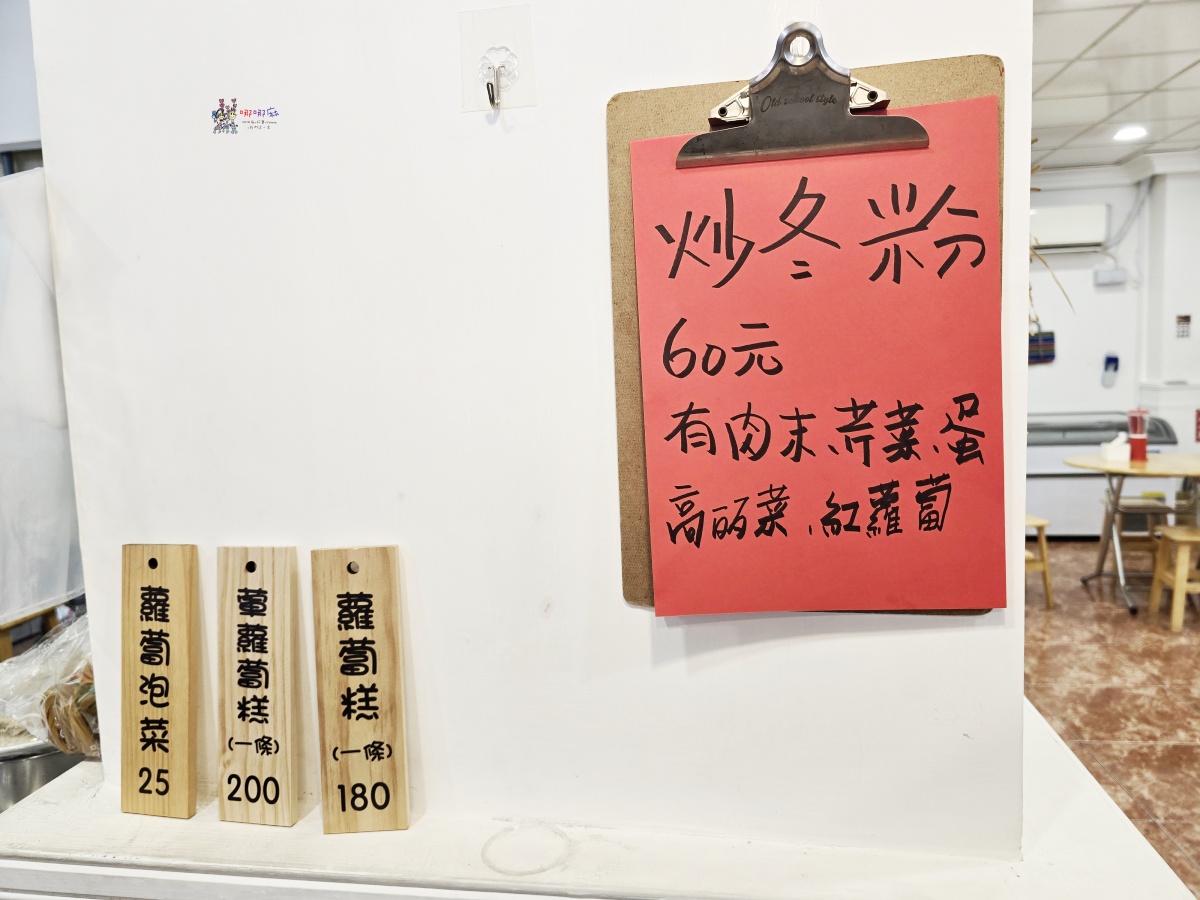 哪哪麻
Old school style
炒冬粉
60元
有肉末、芹菜、蛋
高麗菜、紅蘿蔔
蘿蔔泡菜
25
葷蘿蔔糕
(一條)
200
蘿蔔糕
(一條)
180